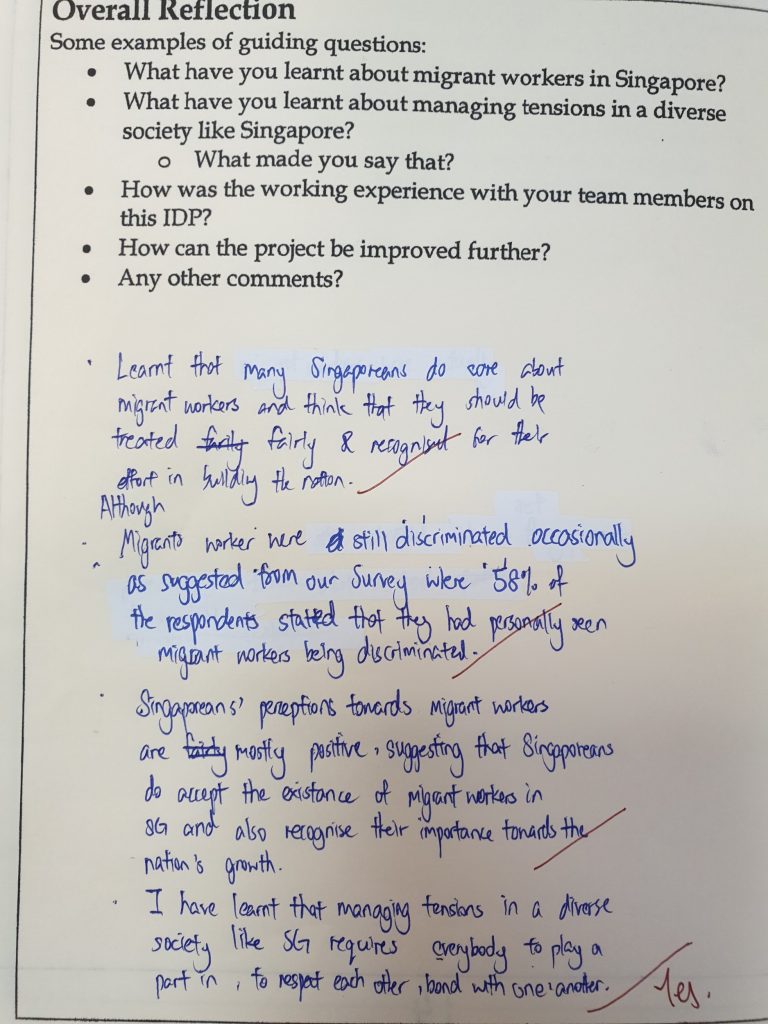 Overall Reflection
Some examples of guiding questions:
• What have you learnt about migrant workers in Singapore?
• What have you learnt about managing tensions in a diverse
society like Singapore?
o What made you say that?
• How was the working experience with your team members on
this IDP?
• How can the project be improved further?
• Any other comments?
• Learnt that many Singaporeans do care about
migrant workers and think that they should be
treated fairly & recognised for their
effort in building the nation.
Although
• Migrants worker were still discriminated occasionally
as suggested from our survey where 58% of
the respondents stated that they had personally seen
migrant workers being discriminated.
• Singaporeans' perceptions towards migrant workers
are mostly positive, suggesting that Singaporeans
do accept the existance of migrant workers in
SG and also recognise their importance towards the
nation's growth.
• I have learnt that managing tensions in a diverse
society like SG requires everybody to play a
part in, to respect each other, bond with one another.
Yes.